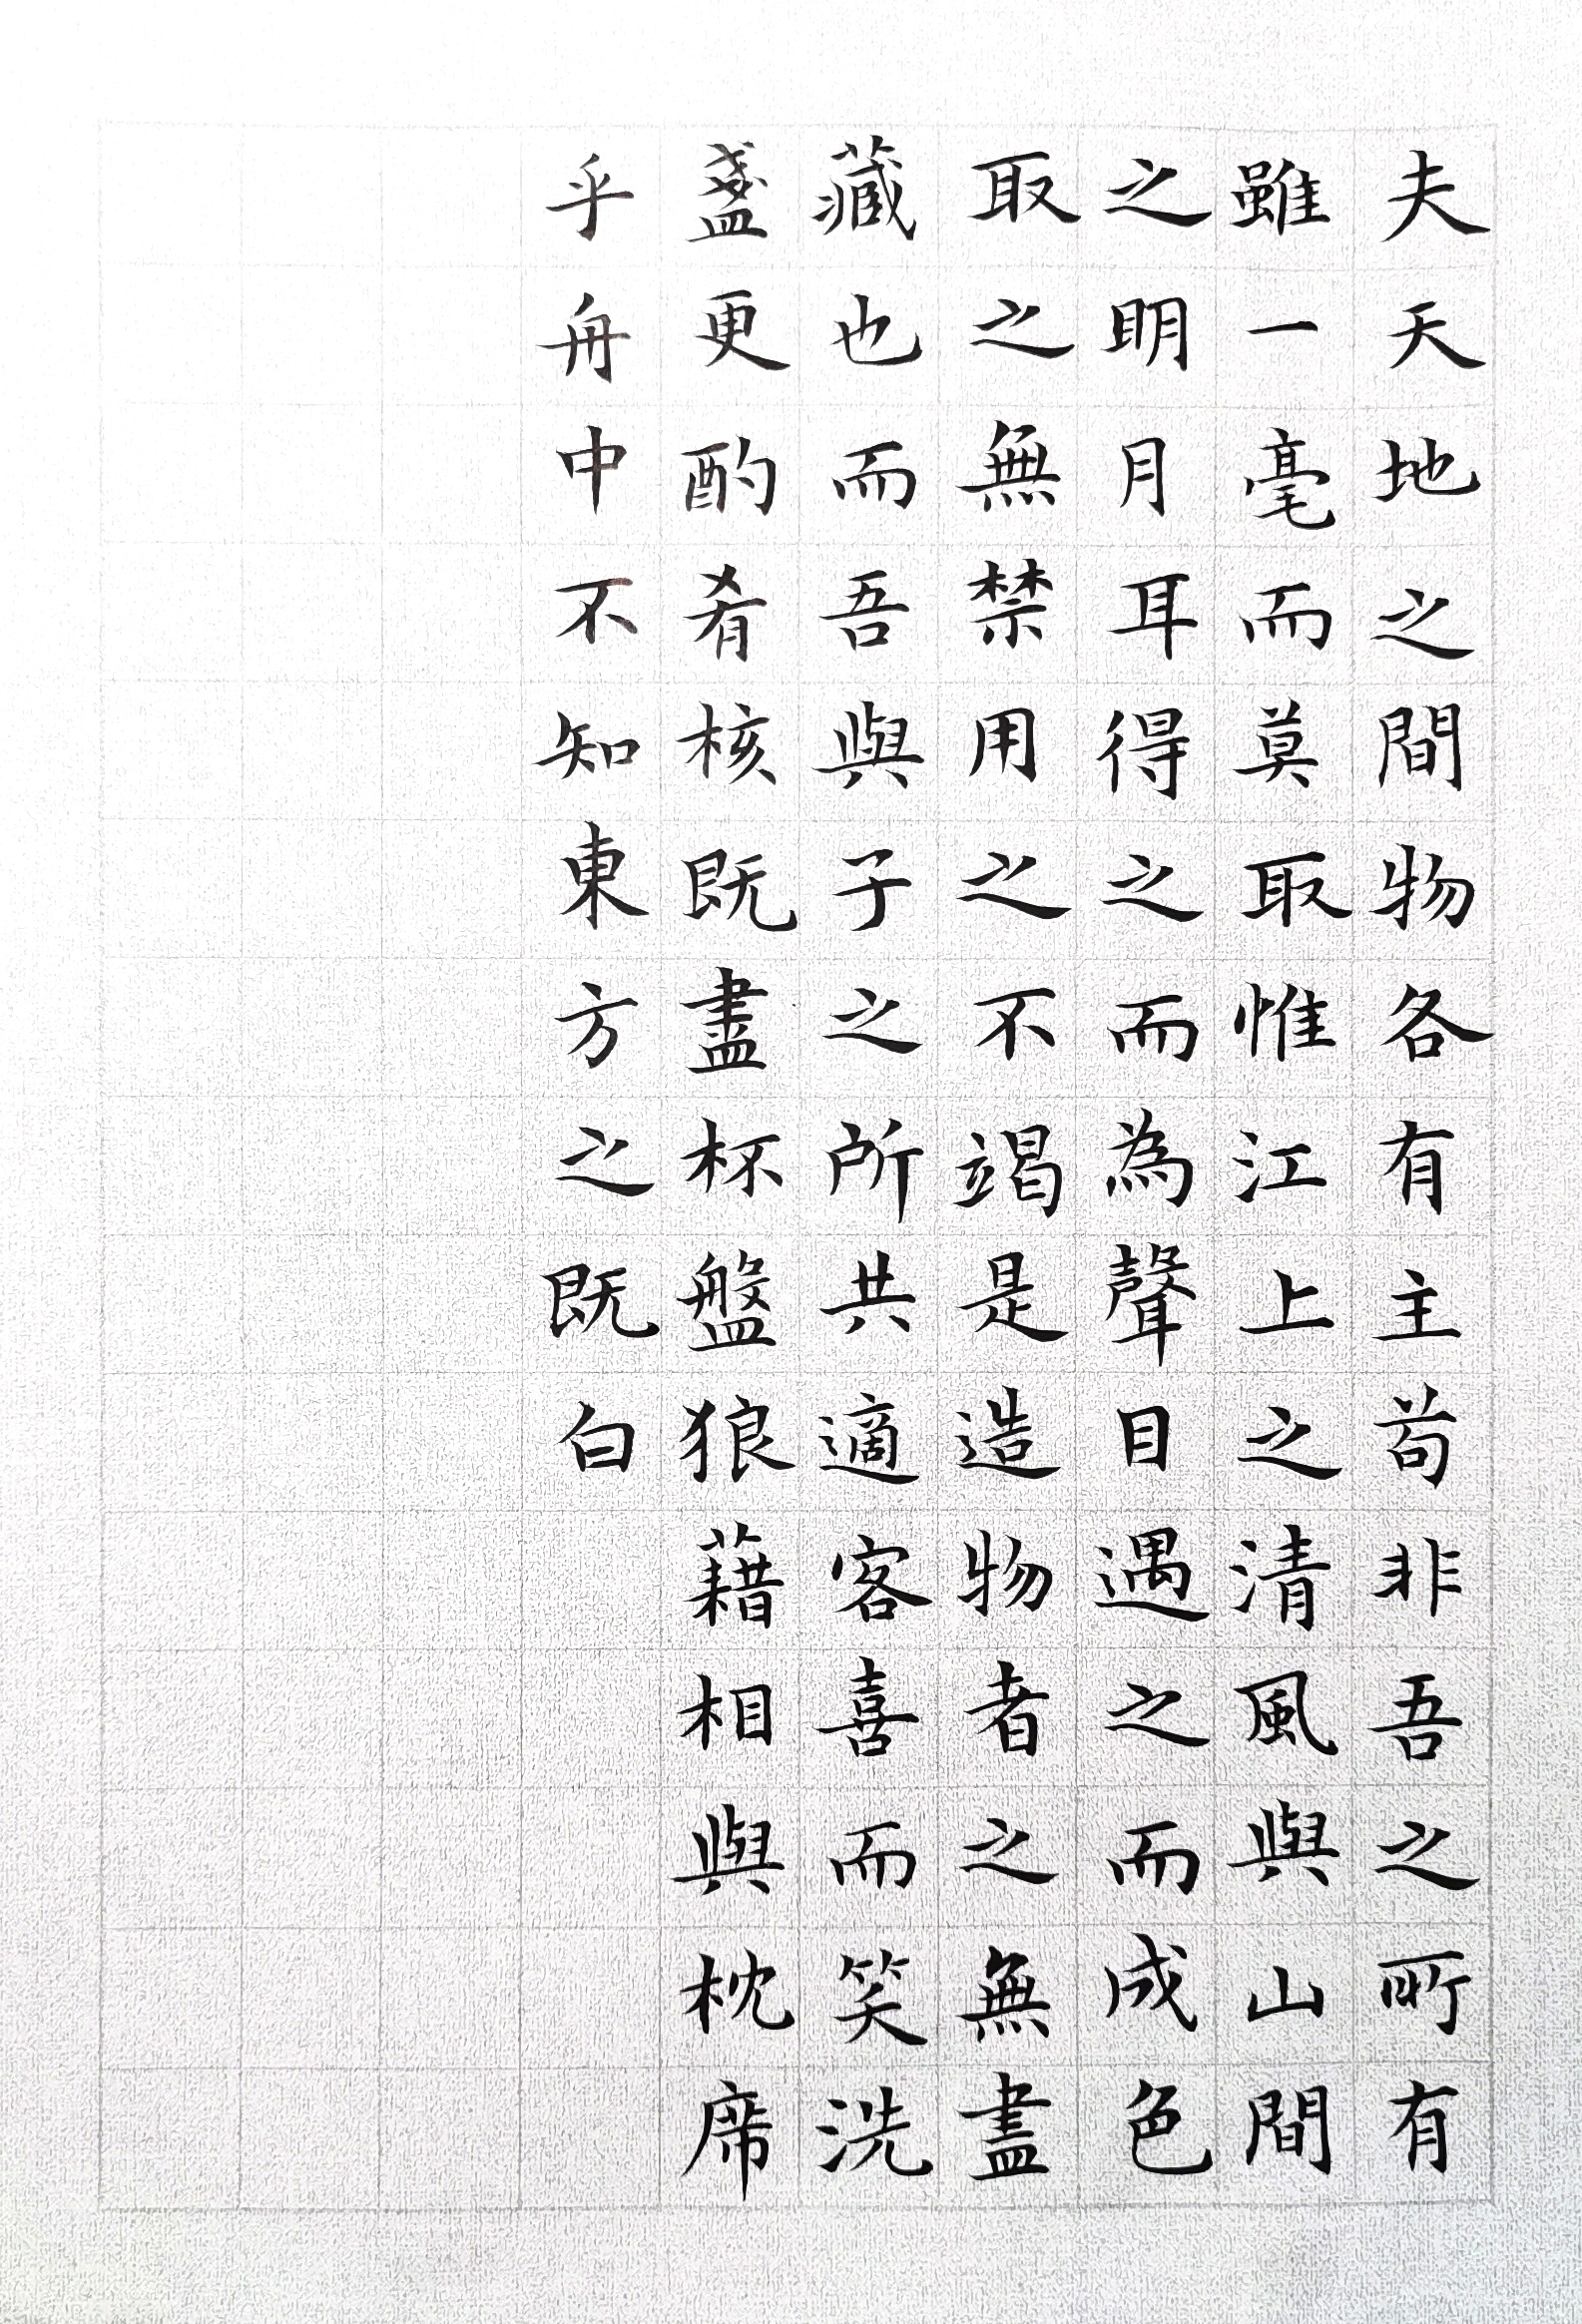 夫天地之間物各有主苟非吾之所有
雖一毫而莫取惟江上之清風與山間
之明月耳得之而為聲目遇之而成色
取之無禁用之不竭是造物者之無盡
藏也而吾與子之所共適客喜而笑洗
盞更酌肴核既盡杯盤狼藉相與枕席
乎舟中不知東方之既白